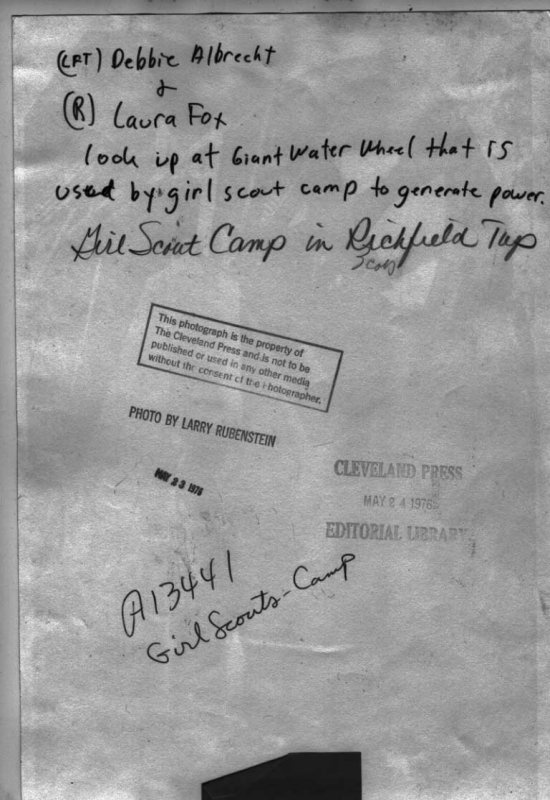 (LFT) Debbie Albrecht
&
(R) Laura Fox
look up at Giant Water Wheel that is
used by girl scout camp to generate power.
Girl Scout Camp in Richfield Twp
This photograph is the property of
The Cleveland Press and is not to be
published or used in any other media
without the consent of the Photographer.
PHOTO BY LARRY RUBENSTEIN
MAY 23 1976
CLEVELAND PRESS
MAY 24 1976
EDITORIAL LIBRARY
A13441
Girl Scouts-Camp